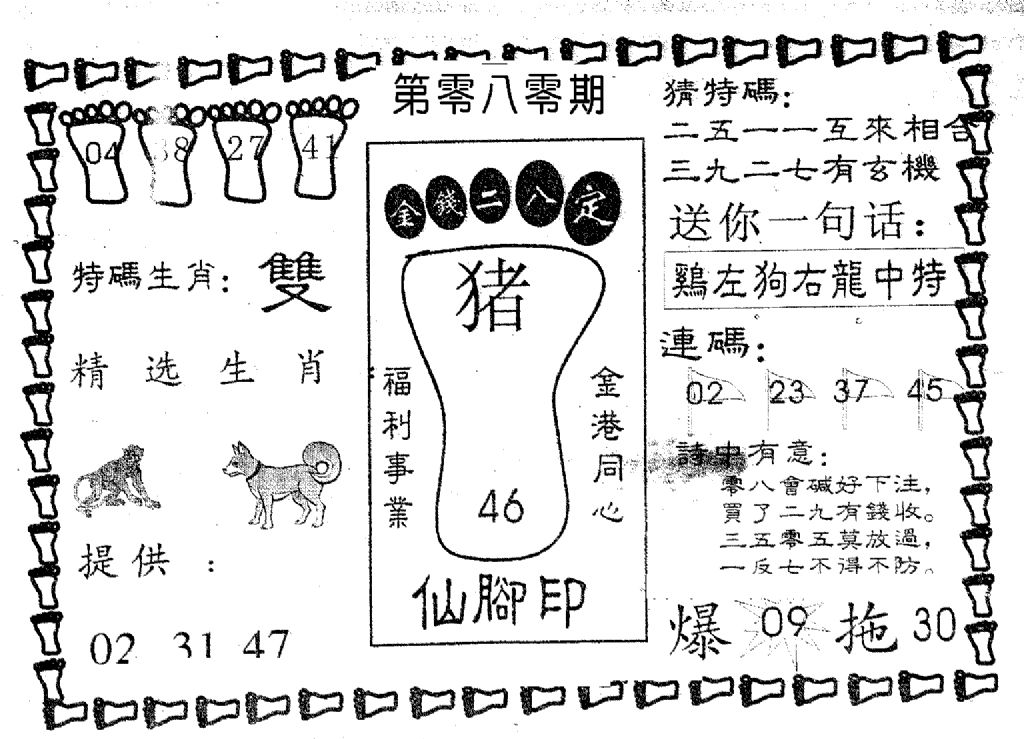 第零八零期
04 38 27 41
特碼生肖：雙
精选生肖
提供：
02 31 47
金錢二八定
猪
福利事業
金港同心
46
仙腳印
猜特碼：
二五一一互來相合
三九二七有玄機
送你一句话：
鷄左狗右龍中特
連碼：
02 23 37 45
詩中有意：
零八會碱好下注，
買了二九有錢收。
三五零五莫放過，
一反七不得不防。
爆 09 拖 30